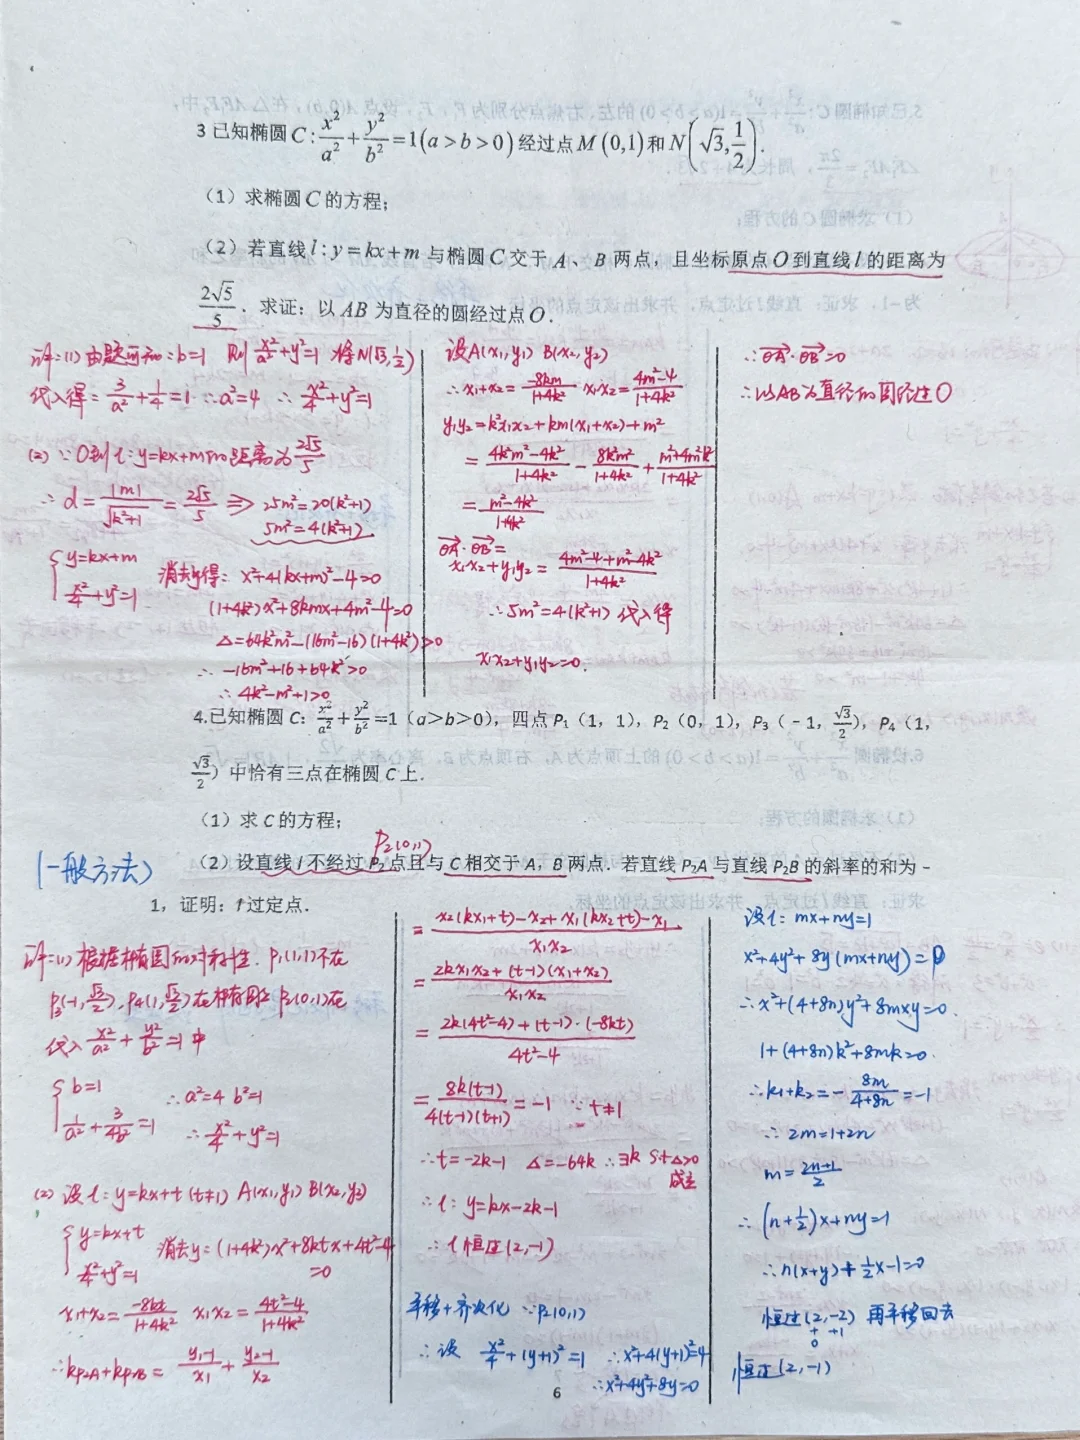 3 已知椭圆 C: x²/a² + y²/b² = 1 (a > b > 0) 经过点 M (0,1) 和 N(√3, 1/2).
（1）求椭圆 C 的方程；
（2）若直线 l : y = kx + m 与椭圆 C 交于 A、B 两点，且坐标原点 O 到直线 l 的距离为
2√5/5. 求证：以 AB 为直径的圆经过点 O.
证=(1) 由题可知: b=1 则 x²/a²+y²=1 将N(√3,1/2)
代入得= 3/a²+1/4=1 ∴a²=4 ∴ x²/4+y²=1
(2) ∵O到 l: y=kx+m的距离为 2√5/5
∴ d= |m|/√(k²+1) = 2√5/5 ⇒ 25m²=20(k²+1)
5m²=4(k²+1)
{ y=kx+m
x²/4+y²=1
消去y得: x²+4(kx+m)²-4=0
(1+4k²)x²+8kmx+4m²-4=0
Δ=64k²m²-(16m²-16)(1+4k²)>0
∴ -16m²+16+64k²>0
∴ 4k²-m²+1>0
设A(x₁,y₁) B(x₂,y₂)
∴x₁+x₂= -8km/1+4k² x₁x₂= 4m²-4/1+4k²
y₁y₂=k²x₁x₂+km(x₁+x₂)+m²
= 4k²m²-4k²/1+4k² - 8k²m²/1+4k² + m²+4m²k²/1+4k²
= m²-4k²/1+4k²
OA·OB=
x₁x₂+y₁y₂= 4m²-4+m²-4k²/1+4k²
∴5m²=4(k²+1) 代入得
x₁x₂+y₁y₂=0.
∴OA·OB=0
∴以AB为直径的圆经过O
4.已知椭圆 C：x²/a²+y²/b²=1（a＞b＞0），四点 P₁（1，1），P₂（0，1），P₃（﹣1，√3/2），P₄（1，
√3/2）中恰有三点在椭圆 C 上．
（1）求 C 的方程；
P₂(0,1)
（2）设直线 l 不经过 P₂ 点且与 C 相交于 A，B 两点．若直线 P₂A 与直线 P₂B 的斜率的和为﹣
1，证明：l 过定点．
(一般方法)
证=(1) 根据椭圆的对称性. P₁(1,1)不在
P₃(-1,√3/2), P₄(1,√3/2)在椭圆上 P₂(0,1)在
代入 x²/a²+y²/b²=1 中
{ b=1
1/a²+3/4b²=1
∴a²=4 b²=1
∴ x²/4+y²=1
(2) 设 l: y=kx+t (t≠1) A(x₁,y₁) B(x₂,y₂)
{ y=kx+t
x²/4+y²=1
消去y= (1+4k²)x²+8ktx+4t²-4
=0
x₁+x₂= -8kt/1+4k² x₁x₂= 4t²-4/1+4k²
∴kP₂A+kP₂B= y₁-1/x₁ + y₂-1/x₂
= x₂(kx₁+t)-x₂+x₁(kx₂+t)-x₁/x₁x₂
= 2kx₁x₂+(t-1)(x₁+x₂)/x₁x₂
= 2k(4t²-4)+(t-1)·(-8kt)/4t²-4
= 8k(t-1)/4(t-1)(t+1) =-1 ∵t≠1
∴t=-2k-1 Δ=-64k ∴∃k s.t Δ>0
成立
∴l: y=kx-2k-1
∴l恒过(2,-1)
平移+齐次化 ∵P₂(0,1)
∴设 x²/4+(y+1)²=1 ∴x²+4(y+1)²=4
∴x²+4y²+8y=0
设l: mx+ny=1
x²+4y²+8y(mx+ny)=0
∴x²+(4+8n)y²+8mxy=0.
1+(4+8n)k²+8mk=0.
∴k₁+k₂=- 8m/4+8n =-1
∴ 2m=1+2n
m= 2n+1/2
∴ (n+1/2)x+ny=1
∴n(x+y)+1/2x-1=0
恒过(2,-2) 再平移回去
+ +1
0
恒过(2,-1)
6